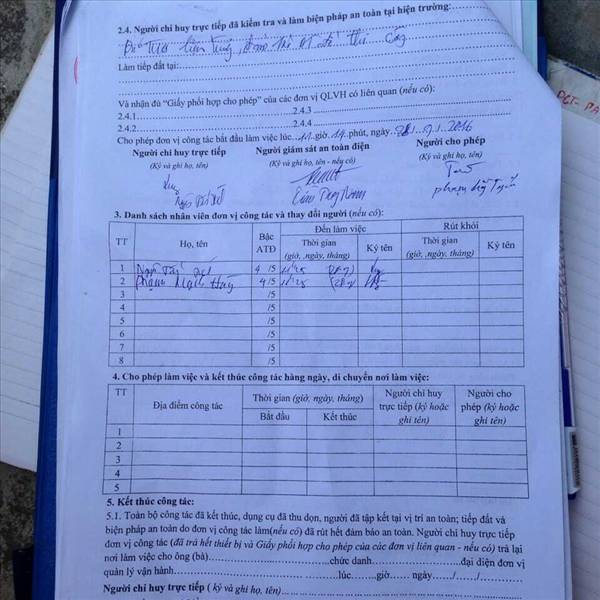 2.4. Người chỉ huy trực tiếp đã kiểm tra và làm biện pháp an toàn tại hiện trường:
Làm tiếp đất tại:
Và nhận đủ "Giấy phối hợp cho phép" của các đơn vị QLVH có liên quan (nếu có):
2.4.1 2.4.3
2.4.2 2.4.4
Cho phép đơn vị công tác bắt đầu làm việc lúc 11 giờ 14 phút, ngày / / 2016
Người chỉ huy trực tiếp Người giám sát an toàn điện Người cho phép
(Ký và ghi họ, tên) (Ký và ghi họ, tên - nếu có) (Ký và ghi họ, tên)
3. Danh sách nhân viên đơn vị công tác và thay đổi người (nếu có):
TT Họ, tên Bậc ATĐ Đến làm việc Rút khỏi
Thời gian (giờ, ,ngày, tháng) Ký tên Thời gian (giờ, ,ngày, tháng) Ký tên
1 4 /5
2 Phạm Mạnh 4 /5
3 /5
4 /5
5 /5
6 /5
7 /5
8 /5
4. Cho phép làm việc và kết thúc công tác hàng ngày, di chuyển nơi làm việc:
TT Địa điểm công tác Thời gian (giờ, ngày. tháng) Người chỉ huy trực tiếp (ký hoặc ghi tên) Người cho phép (ký hoặc ghi tên)
Bắt đầu Kết thúc
1
2
3
4
5
5. Kết thúc công tác:
5.1. Toàn bộ công tác đã kết thúc, dụng cụ đã thu dọn, người đã tập kết tại vị trí an toàn; tiếp đất và
biện pháp an toàn do đơn vị công tác làm(nếu có) đã rút hết đảm bảo an toàn. Người chỉ huy trực tiếp
đơn vị công tác (đã trả hết thiết bị và Giấy phối hợp cho phép của các đơn vị liên quan - nếu có) trả lại
nơi làm việc cho ông (bà) chức danh đại diện đơn vị
quản lý vận hành lúc giờ ngày / /
Người chỉ huy trực tiếp ( ký và ghi họ, tên)